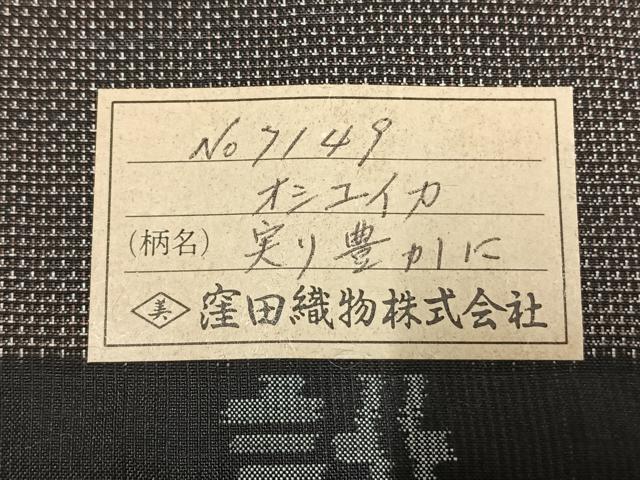 No 7149
オシユイカ
(柄名) 実り豊かに
美 窪田織物株式会社